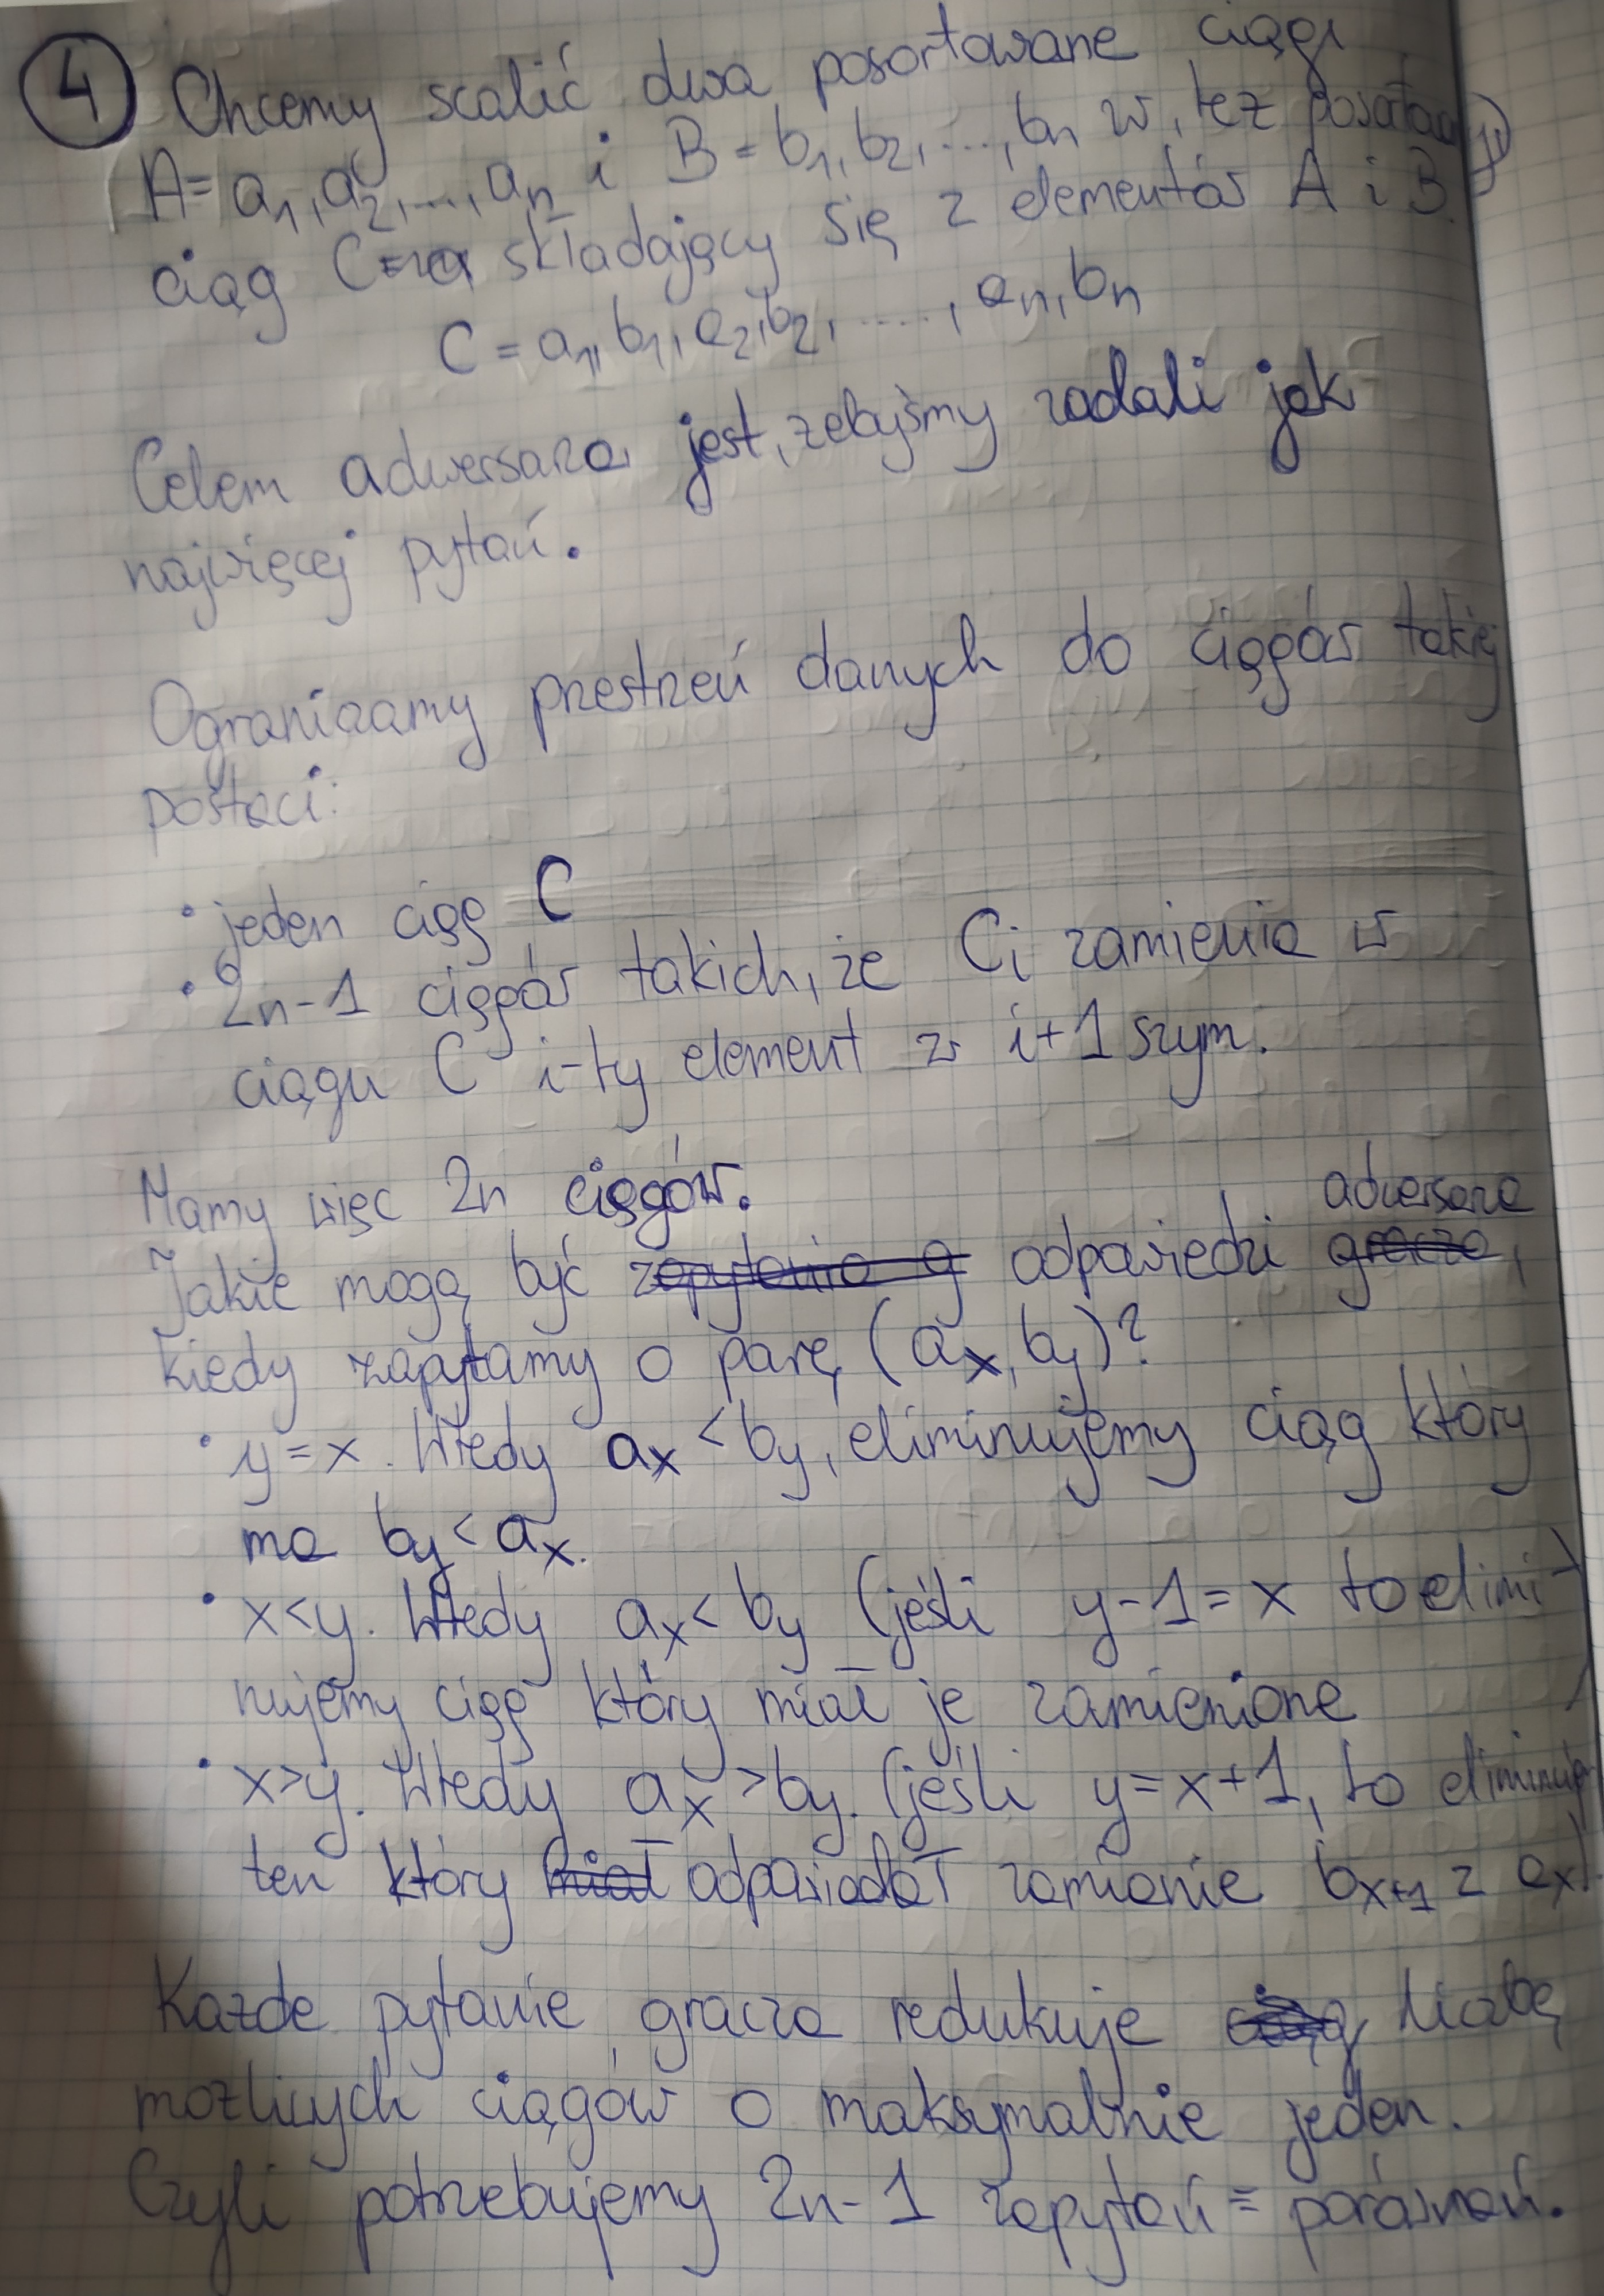 4 Chcemy scalić dwa posortowane ciągi
A = a1, a2, ..., an i B = b1, b2, ..., bn w, też
ciąg C składający się z elementów A i B.
C = a1, b1, a2, b2, ....., an, bn
Celem adwersarza jest, żebyśmy zadali jak
najwięcej pytań.
Ograniczamy przestrzeń danych do ciągów takiej
postaci:
• jeden ciąg C
• 2n-1 ciągów takich, że Ci zamienia w
ciągu C i-ty element z i+1 szym.
Mamy więc 2n ciągów.
Jakie mogą być odpowiedzi adwersarza,
kiedy zapytamy o parę (ax, by)?
• y=x. Wtedy ax < by, eliminujemy ciąg który
ma by < ax.
• x<y. Wtedy ax < by (jeśli y-1=x to elimi-
nujemy ciąg który miał je zamienione
• x>y. Wtedy ax > by. (jeśli y=x+1, to eliminuje
ten który odpowiadał zamianie bx+1 z ax).
Każde pytanie gracza redukuje liczbę
możliwych ciągów o maksymalnie jeden.
Czyli potrzebujemy 2n-1 zapytań = porównań.